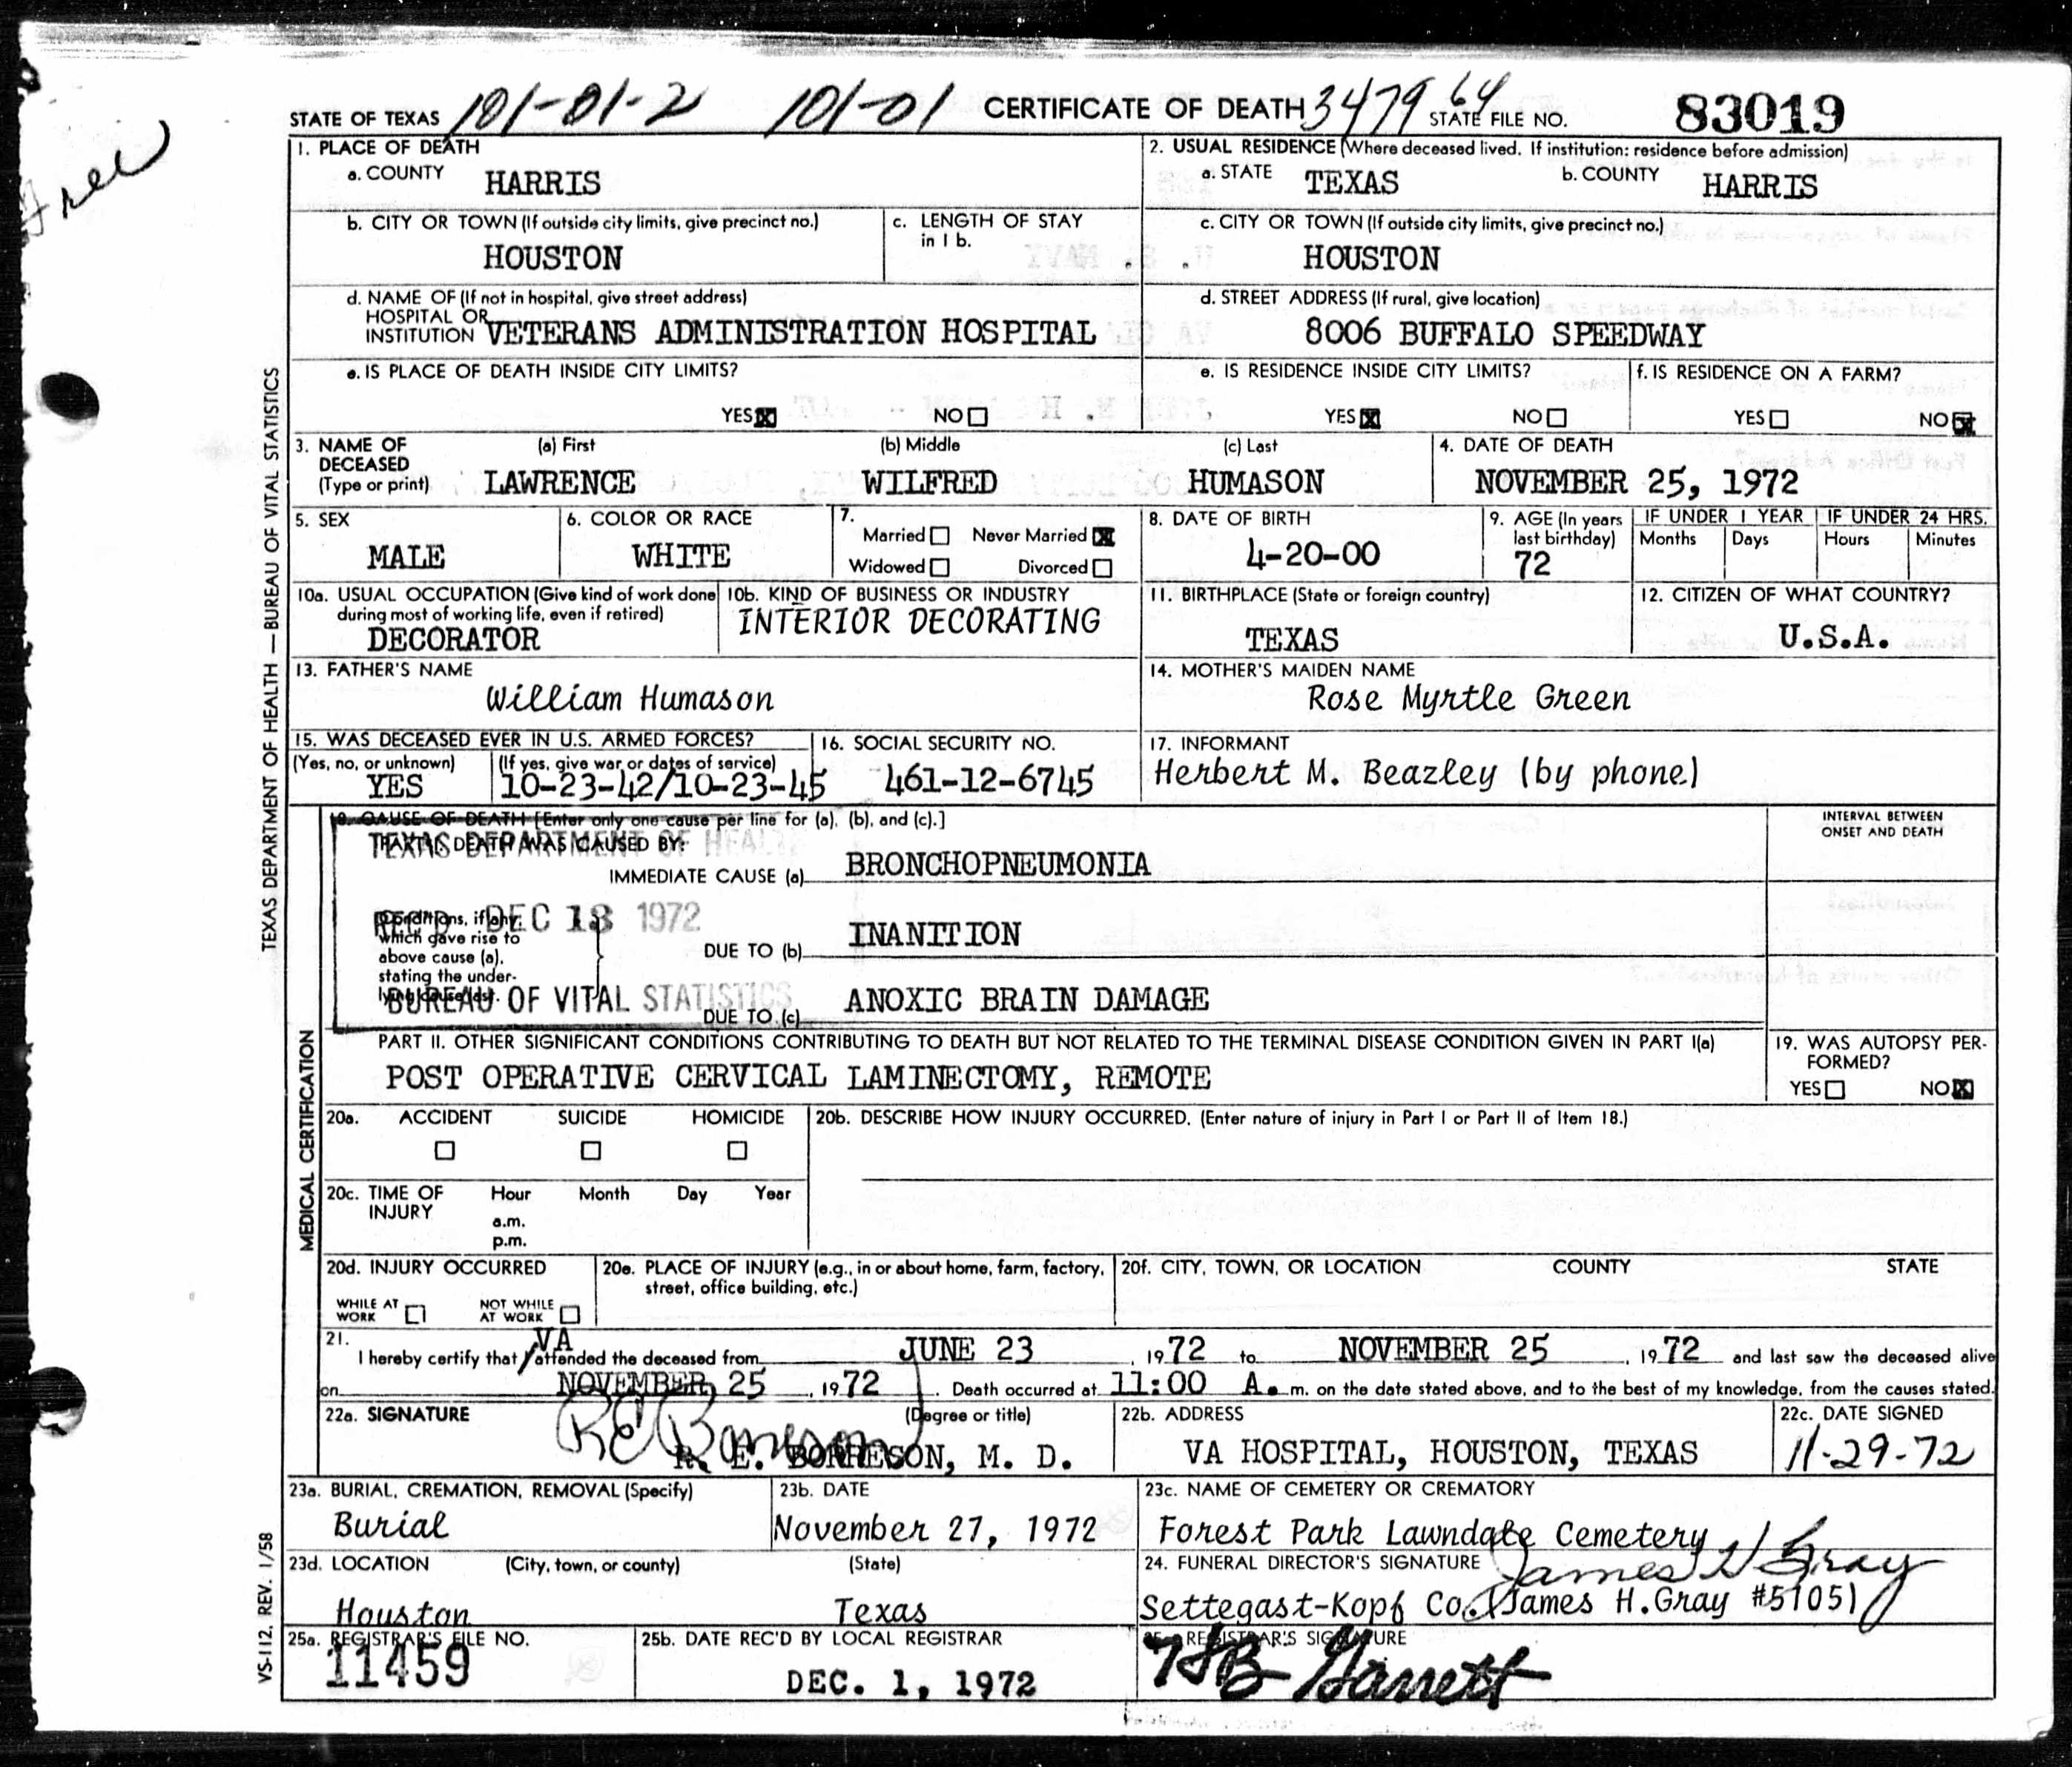 free
STATE OF TEXAS 101-01-2 101-01 CERTIFICATE OF DEATH 3479 64 STATE FILE NO. 83019
1. PLACE OF DEATH
a. COUNTY HARRIS
2. USUAL RESIDENCE (Where deceased lived. If institution: residence before admission)
a. STATE TEXAS b. COUNTY HARRIS
b. CITY OR TOWN (If outside city limits, give precinct no.)
HOUSTON
c. LENGTH OF STAY
in 1 b.
c. CITY OR TOWN (If outside city limits, give precinct no.)
HOUSTON
d. NAME OF (If not in hospital, give street address)
HOSPITAL OR
INSTITUTION VETERANS ADMINISTRATION HOSPITAL
d. STREET ADDRESS (If rural, give location)
8006 BUFFALO SPEEDWAY
e. IS PLACE OF DEATH INSIDE CITY LIMITS?
YES X NO
e. IS RESIDENCE INSIDE CITY LIMITS?
YES X NO
f. IS RESIDENCE ON A FARM?
YES NO X
3. NAME OF
DECEASED
(Type or print)
(a) First (b) Middle (c) Last
LAWRENCE WILFRED HUMASON
4. DATE OF DEATH
NOVEMBER 25, 1972
5. SEX
MALE
6. COLOR OR RACE
WHITE
7.
Married Never Married X
Widowed Divorced
8. DATE OF BIRTH
4-20-00
9. AGE (In years
last birthday)
72
IF UNDER 1 YEAR IF UNDER 24 HRS.
Months Days Hours Minutes
10a. USUAL OCCUPATION (Give kind of work done
during most of working life, even if retired)
DECORATOR
10b. KIND OF BUSINESS OR INDUSTRY
INTERIOR DECORATING
11. BIRTHPLACE (State or foreign country)
TEXAS
12. CITIZEN OF WHAT COUNTRY?
U.S.A.
13. FATHER'S NAME
William Humason
14. MOTHER'S MAIDEN NAME
Rose Myrtle Green
15. WAS DECEASED EVER IN U.S. ARMED FORCES?
(Yes, no, or unknown) (If yes, give war or dates of service)
YES 10-23-42/10-23-45
16. SOCIAL SECURITY NO.
461-12-6745
17. INFORMANT
Herbert M. Beazley (by phone)
18. CAUSE OF DEATH [Enter only one cause per line for (a), (b), and (c).]
INTERVAL BETWEEN
ONSET AND DEATH
PART I. DEATH WAS CAUSED BY:
TEXAS DEPARTMENT OF HEALTH
IMMEDIATE CAUSE (a) BRONCHOPNEUMONIA
REC'D DEC 18 1972
Conditions, if any,
which gave rise to
above cause (a),
stating the under-
lying cause last.
DUE TO (b) INANITION
BUREAU OF VITAL STATISTICS
DUE TO (c) ANOXIC BRAIN DAMAGE
PART II. OTHER SIGNIFICANT CONDITIONS CONTRIBUTING TO DEATH BUT NOT RELATED TO THE TERMINAL DISEASE CONDITION GIVEN IN PART I(a)
POST OPERATIVE CERVICAL LAMINECTOMY, REMOTE
19. WAS AUTOPSY PER-
FORMED?
YES NO X
20a. ACCIDENT SUICIDE HOMICIDE
20b. DESCRIBE HOW INJURY OCCURRED. (Enter nature of injury in Part I or Part II of Item 18.)
20c. TIME OF
INJURY
Hour Month Day Year
a.m.
p.m.
20d. INJURY OCCURRED
WHILE AT
WORK
NOT WHILE
AT WORK
20e. PLACE OF INJURY (e.g., in or about home, farm, factory,
street, office building, etc.)
20f. CITY, TOWN, OR LOCATION COUNTY STATE
21. VA
I hereby certify that I attended the deceased from JUNE 23, 1972 to NOVEMBER 25, 1972 and last saw the deceased alive
on NOVEMBER 25, 1972. Death occurred at 11:00 A. m. on the date stated above, and to the best of my knowledge, from the causes stated.
22a. SIGNATURE (Degree or title)
R E Borreson
R. E. BORRESON, M. D.
22b. ADDRESS
VA HOSPITAL, HOUSTON, TEXAS
22c. DATE SIGNED
11-29-72
23a. BURIAL, CREMATION, REMOVAL (Specify)
Burial
23b. DATE
November 27, 1972
23c. NAME OF CEMETERY OR CREMATORY
Forest Park Lawndale Cemetery
23d. LOCATION (City, town, or county) (State)
Houston Texas
24. FUNERAL DIRECTOR'S SIGNATURE James H Gray
Settegast-Kopf Co. (James H. Gray #5105)
25a. REGISTRAR'S FILE NO.
11459
25b. DATE REC'D BY LOCAL REGISTRAR
DEC. 1, 1972
REGISTRAR'S SIGNATURE
Garrett
TEXAS DEPARTMENT OF HEALTH — BUREAU OF VITAL STATISTICS
MEDICAL CERTIFICATION
VS-112, REV. 1/58